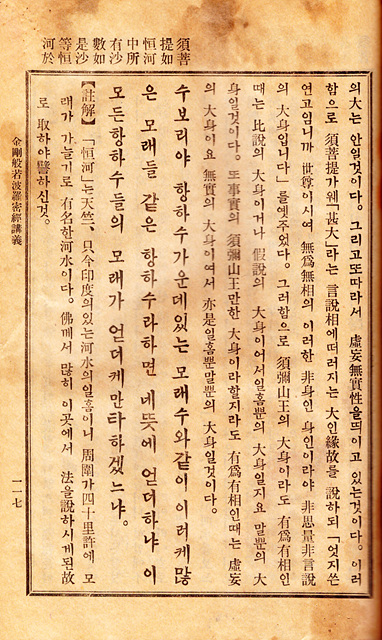 須菩
提如
恒河
中所
有沙
數如
是沙
等恒
河於
의大는 안일것이다. 그리고또따라서 虛妄無實性을띄이고 있는것이다. 이러
함으로 須菩提가웨「甚大」라는 言說相에떠러지는 大인緣故를 說하되 「엇지쓴
연고임니까 世尊이시여 無爲無相의 이러한 非身인 身인이라야 非思量非言說
의 大身입니다」를엿주었다. 그러함으로 須彌山王의 大身이라도 有爲有相인
때는 比說의 大身이거나 假說의 大身이어서일홈뿐의 大身일지요 말뿐의 大
身일것이다. 또事實의 須彌山王만한 大身이라할지라도 有爲有相인때는 虛妄
의 大身이요 無實의 大身이여서 亦是일홈뿐말뿐의 大身일것이다.
수보리야 항하수가운데잇는 모래수와같이 이러케많
은 모래들 같은 항하수라하면 네뜻에 언더하냐 이
모든항하수들의 모래가 언더케만타하겠느냐.
【註解】「恒河」는天竺、只今印度의있는河水의일홈이니 周圍가四十里許에 모
래가 가늘기로 有名한河水이다. 佛께서 많히 이곳에서 法을說하시게된故
로 取하야譬하신것.
金剛般若波羅密經講義
一一七